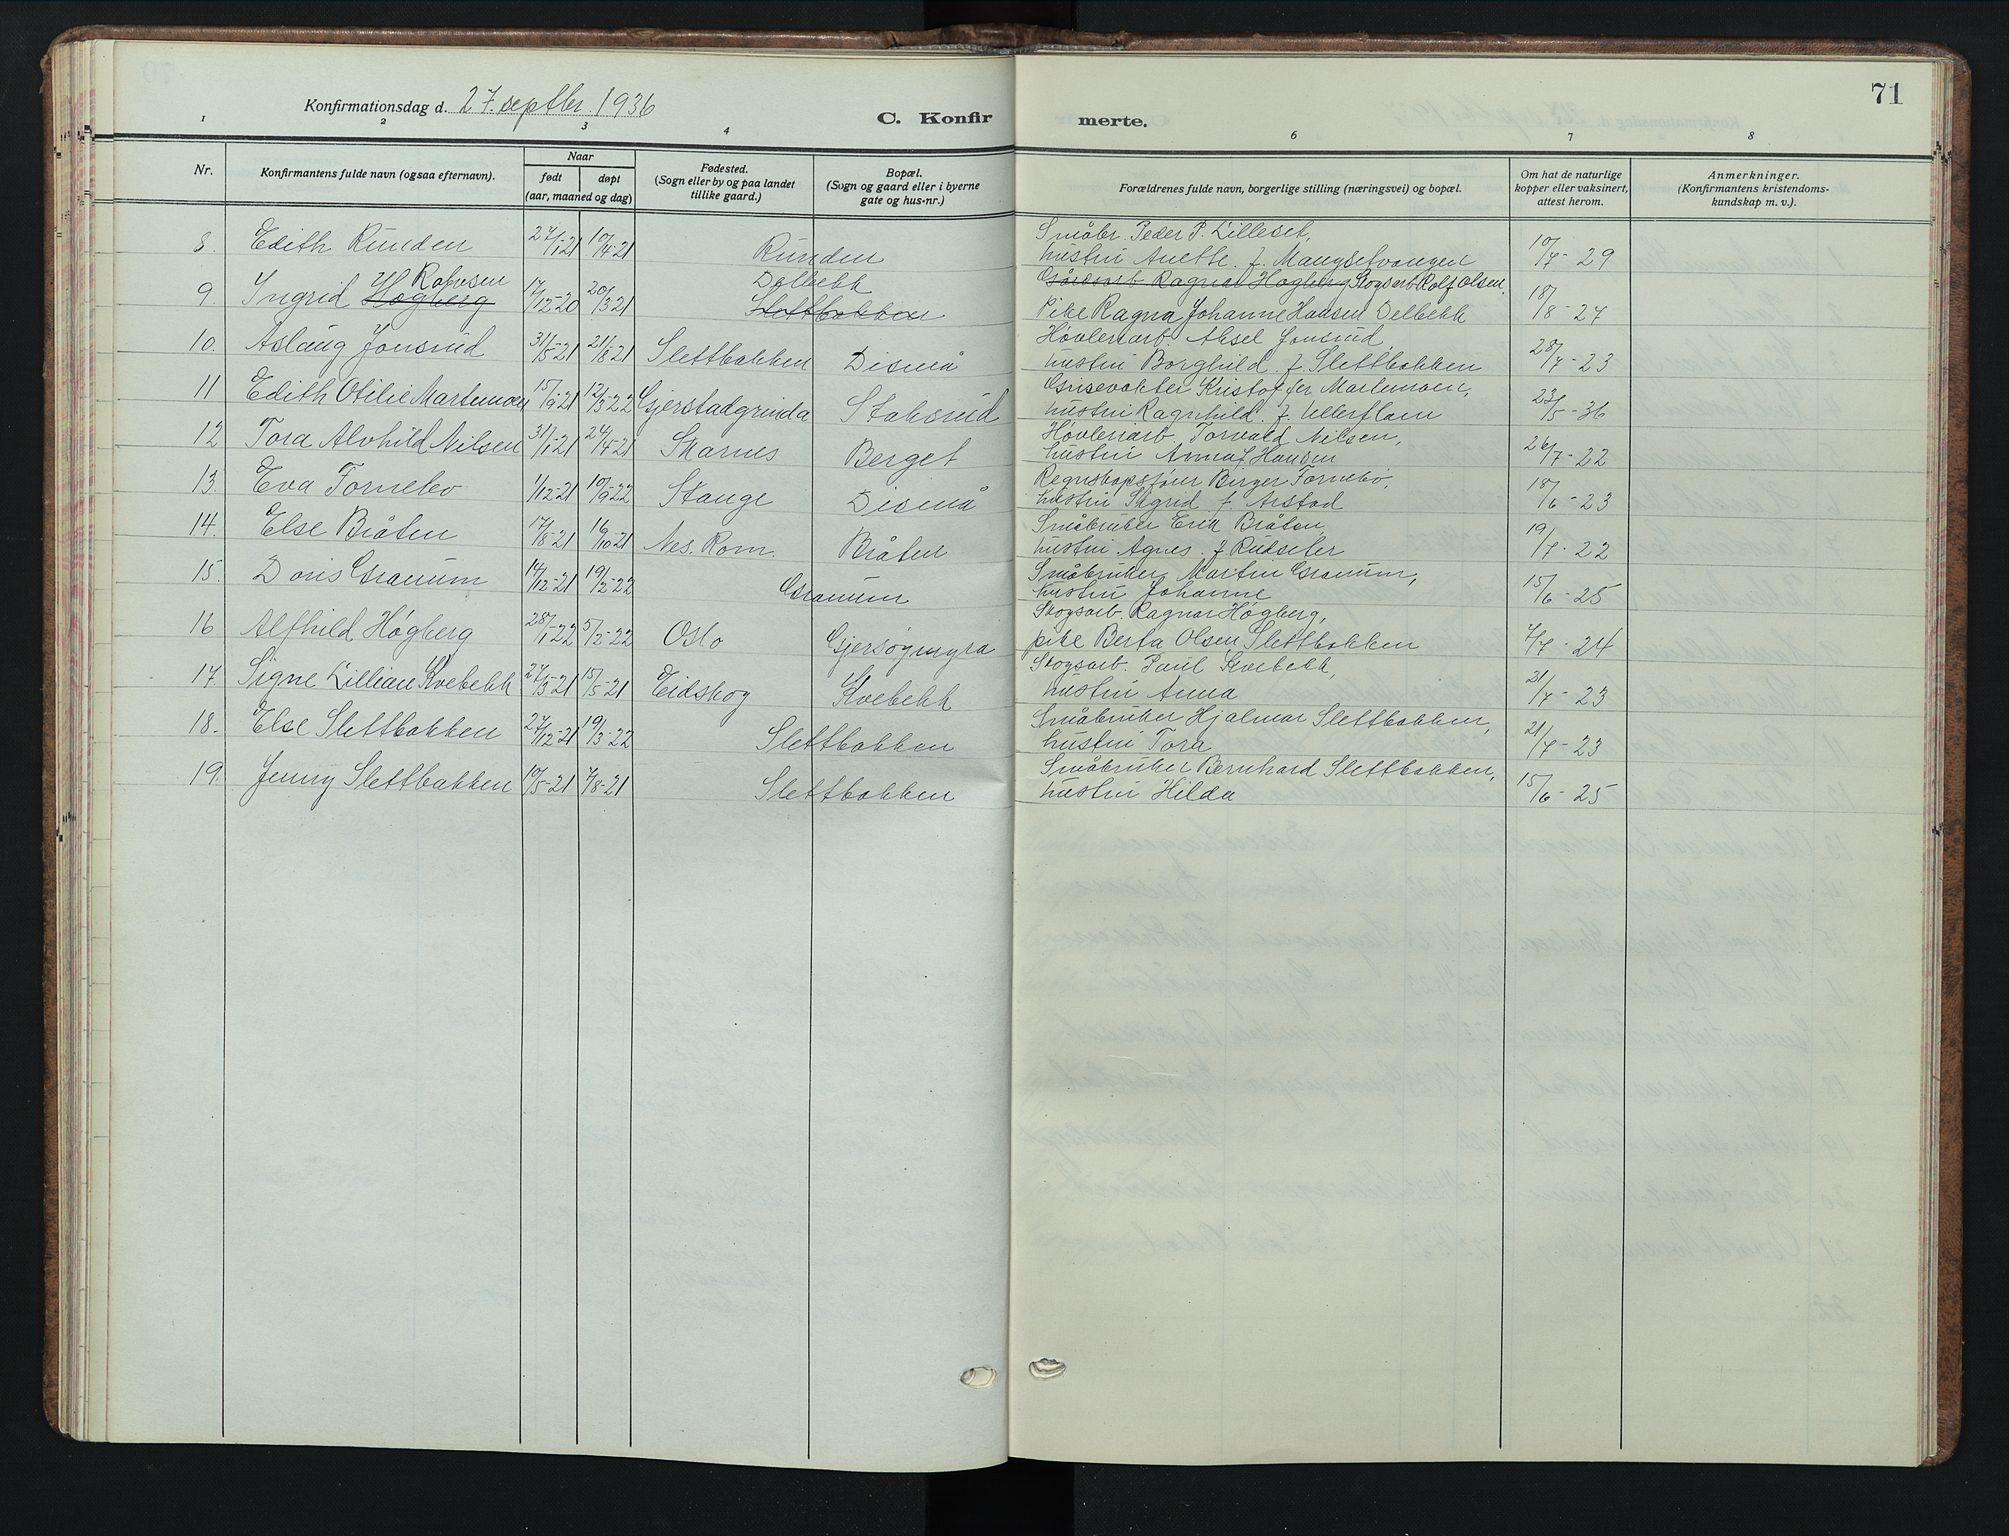 71
Konfirmationsdag d. 27. septbr. 1936
C. Konfir merte.
1 2 3 4 6 7 8
Nr. Konfirmantens fulde navn (ogsaa efternavn). Naar født døpt (aar, maaned og dag) Fødested. (Sogn eller by og paa landet tillike gaard.) Bopæl. (Sogn og gaard eller i byerne gate og hus-nr.) Forældrenes fulde navn, borgerlige stilling (næringsvei) og bopæl. Om hat de naturlige kopper eller vaksinert, attest herom. Anmerkninger. (Konfirmantens kristendoms-kundskap m. v.).
8. Edith Runden 27/1-21 10/4-21 Runden Småbr. Peder P. Lilleset,
hustru Anette f. Mangsetvangen 10/7-29
9. Ingrid Høgberg Rolvsen 17/12-20 20/3-21 Dølbekk Slettbakken Gårdsarb. Ragnar Høgberg Skogsarb. Rolf Olsen,
Pike Ragna Johanne Hansen Delbekk 18/8-27
10. Aslaug Jonsrud 31/5-21 21/8-21 Slettbakken Disenå Høvleriarb. Aksel Jonsrud,
hustru Borghild f. Slettbakken 28/7-23
11 Edith Otilie Martemoen 15/9-21 12/3-22 Gjerstadgrinda Stabsrud Grisevokter Kristoffer Martemoen,
hustru Ragnhild f. Ullerflaen 23/5-36
12 Tora Alvhild Nilsen 31/1-21 24/4-21 Skarnes Berget Høvleriarb. Torvald Nilsen,
hustru Anna f. Hansen 26/7-22
13. Eva Fornebo 1/12-21 10/9-22 Stange Disenå Regnskapsfører Birger Fornebo,
hustru Sigrid f. Arstad 18/6-23
14. Else Bråten 17/8-21 16/10-21 Nes. Rom. Bråten Småbruker Erik Bråten,
hustru Agnes f. Rudseter 19/7-22
15. Doris Granum 14/12-21 19/2-22 Granum Småbruker Martin Granum,
hustru Johanne 15/6-25
16 Alfhild Høgberg 28/1-22 5/2-22 Oslo Gjersøgmyra Skogsarb. Ragnar Høgberg,
pike Berta Olsen, Slettbakken 7/7-24
17. Signe Lillian Kvebekk 27/3-21 15/5-21 Eidskog Kvebekk Skogsarb. Paul Kvebekk,
hustru Anna 21/7-23
18. Else Slettbakken 27/12-21 19/3-22 Slettbakken Småbruker Hjalmar Slettbakken,
hustru Tora 21/7-23
19. Jenny Slettbakken 10/5-21 7/8-21 Slettbakken Småbruker Bernhard Slettbakken,
hustru Hilda 15/6-25